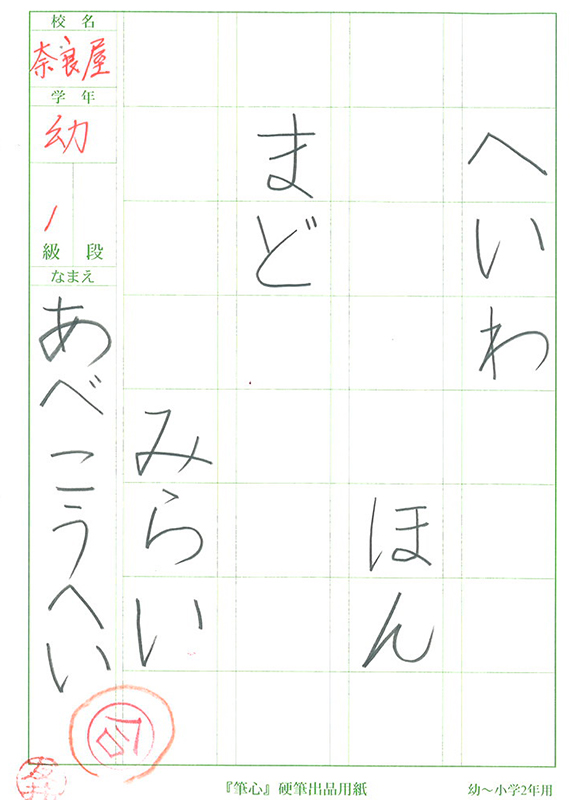 へいわ
ほん
まど
みらい
校名
奈良屋
学年
幼
1
級 段
なまえ
あべこうへい
『筆心』硬筆出品用紙
幼～小学2年用